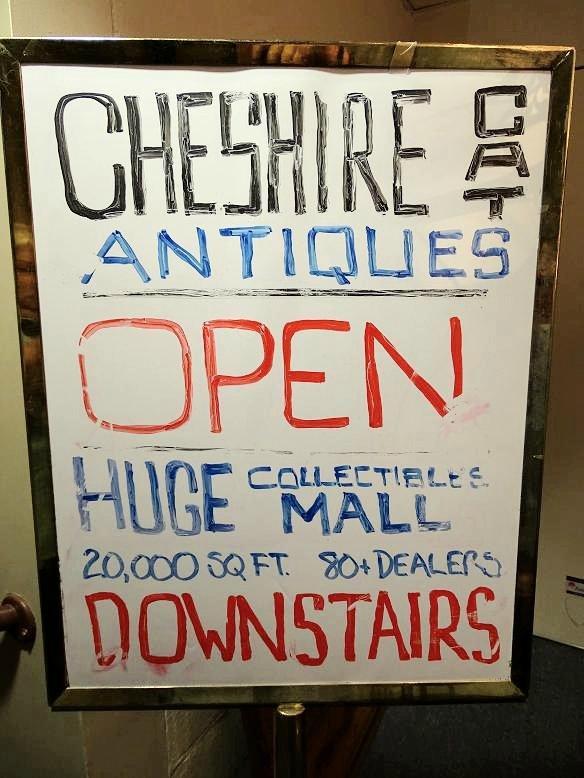 CHESHIRE CAT
ANTIQUES
OPEN
HUGE COLLECTIBLES MALL
20,000 SQ FT. 80+ DEALERS
DOWNSTAIRS